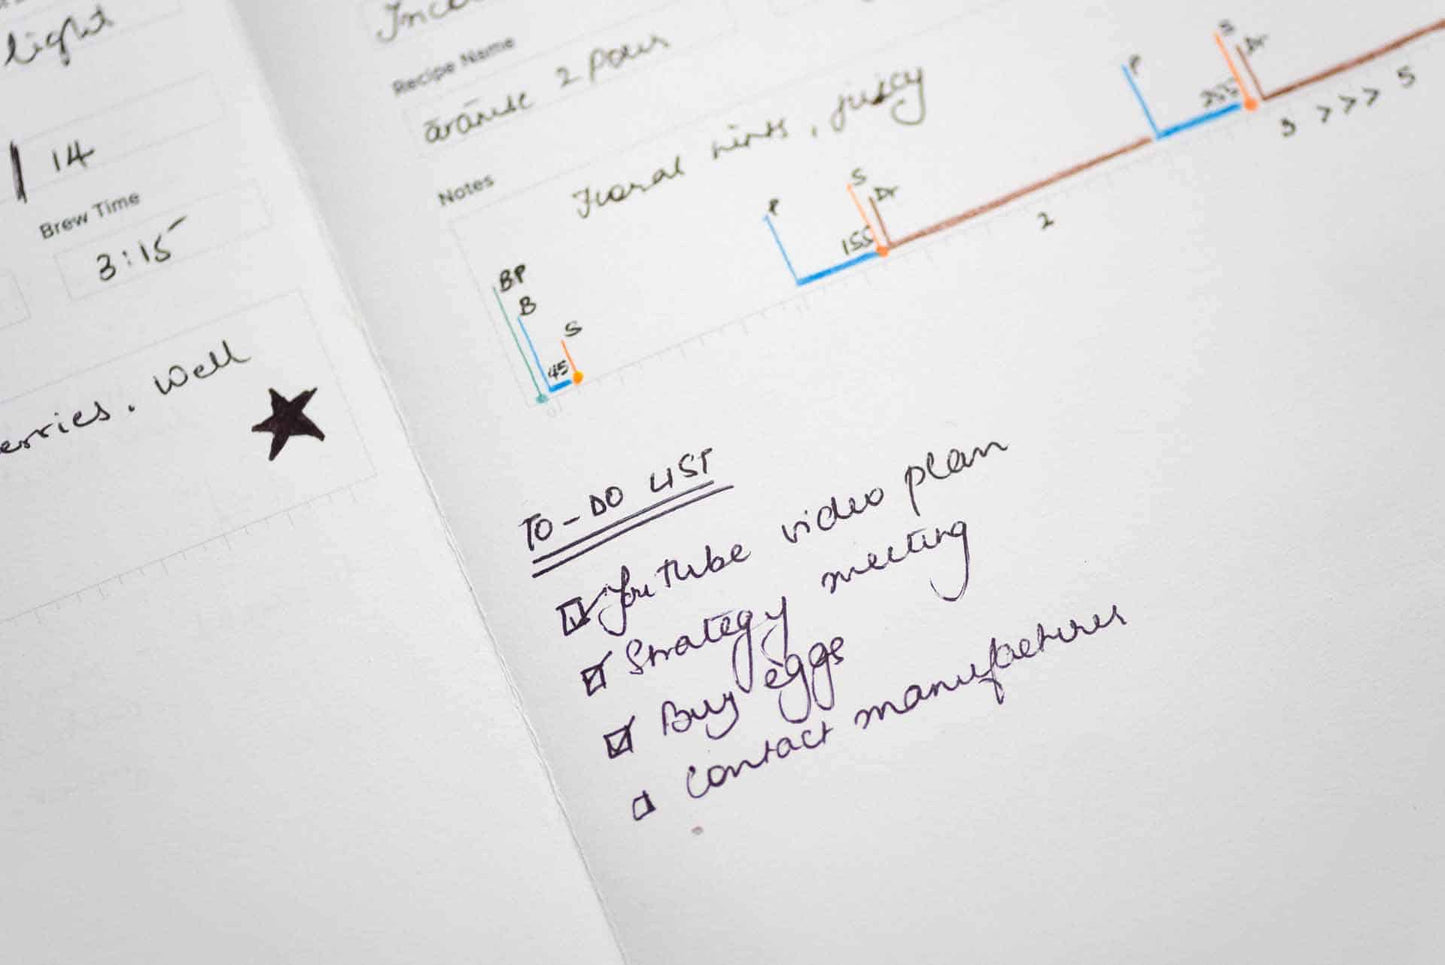 light
14
Brew Time
3:15
erries. Well
Recipe Name
2 pour
Notes
Floral hints, juicy
BP
B
S
45
0
P
S
Dr
155
2
P
S
Dr
255
3 >>> 5
TO-DO LIST
Youtube video plan
Strategy meeting
Buy eggs
Contact manufacturer